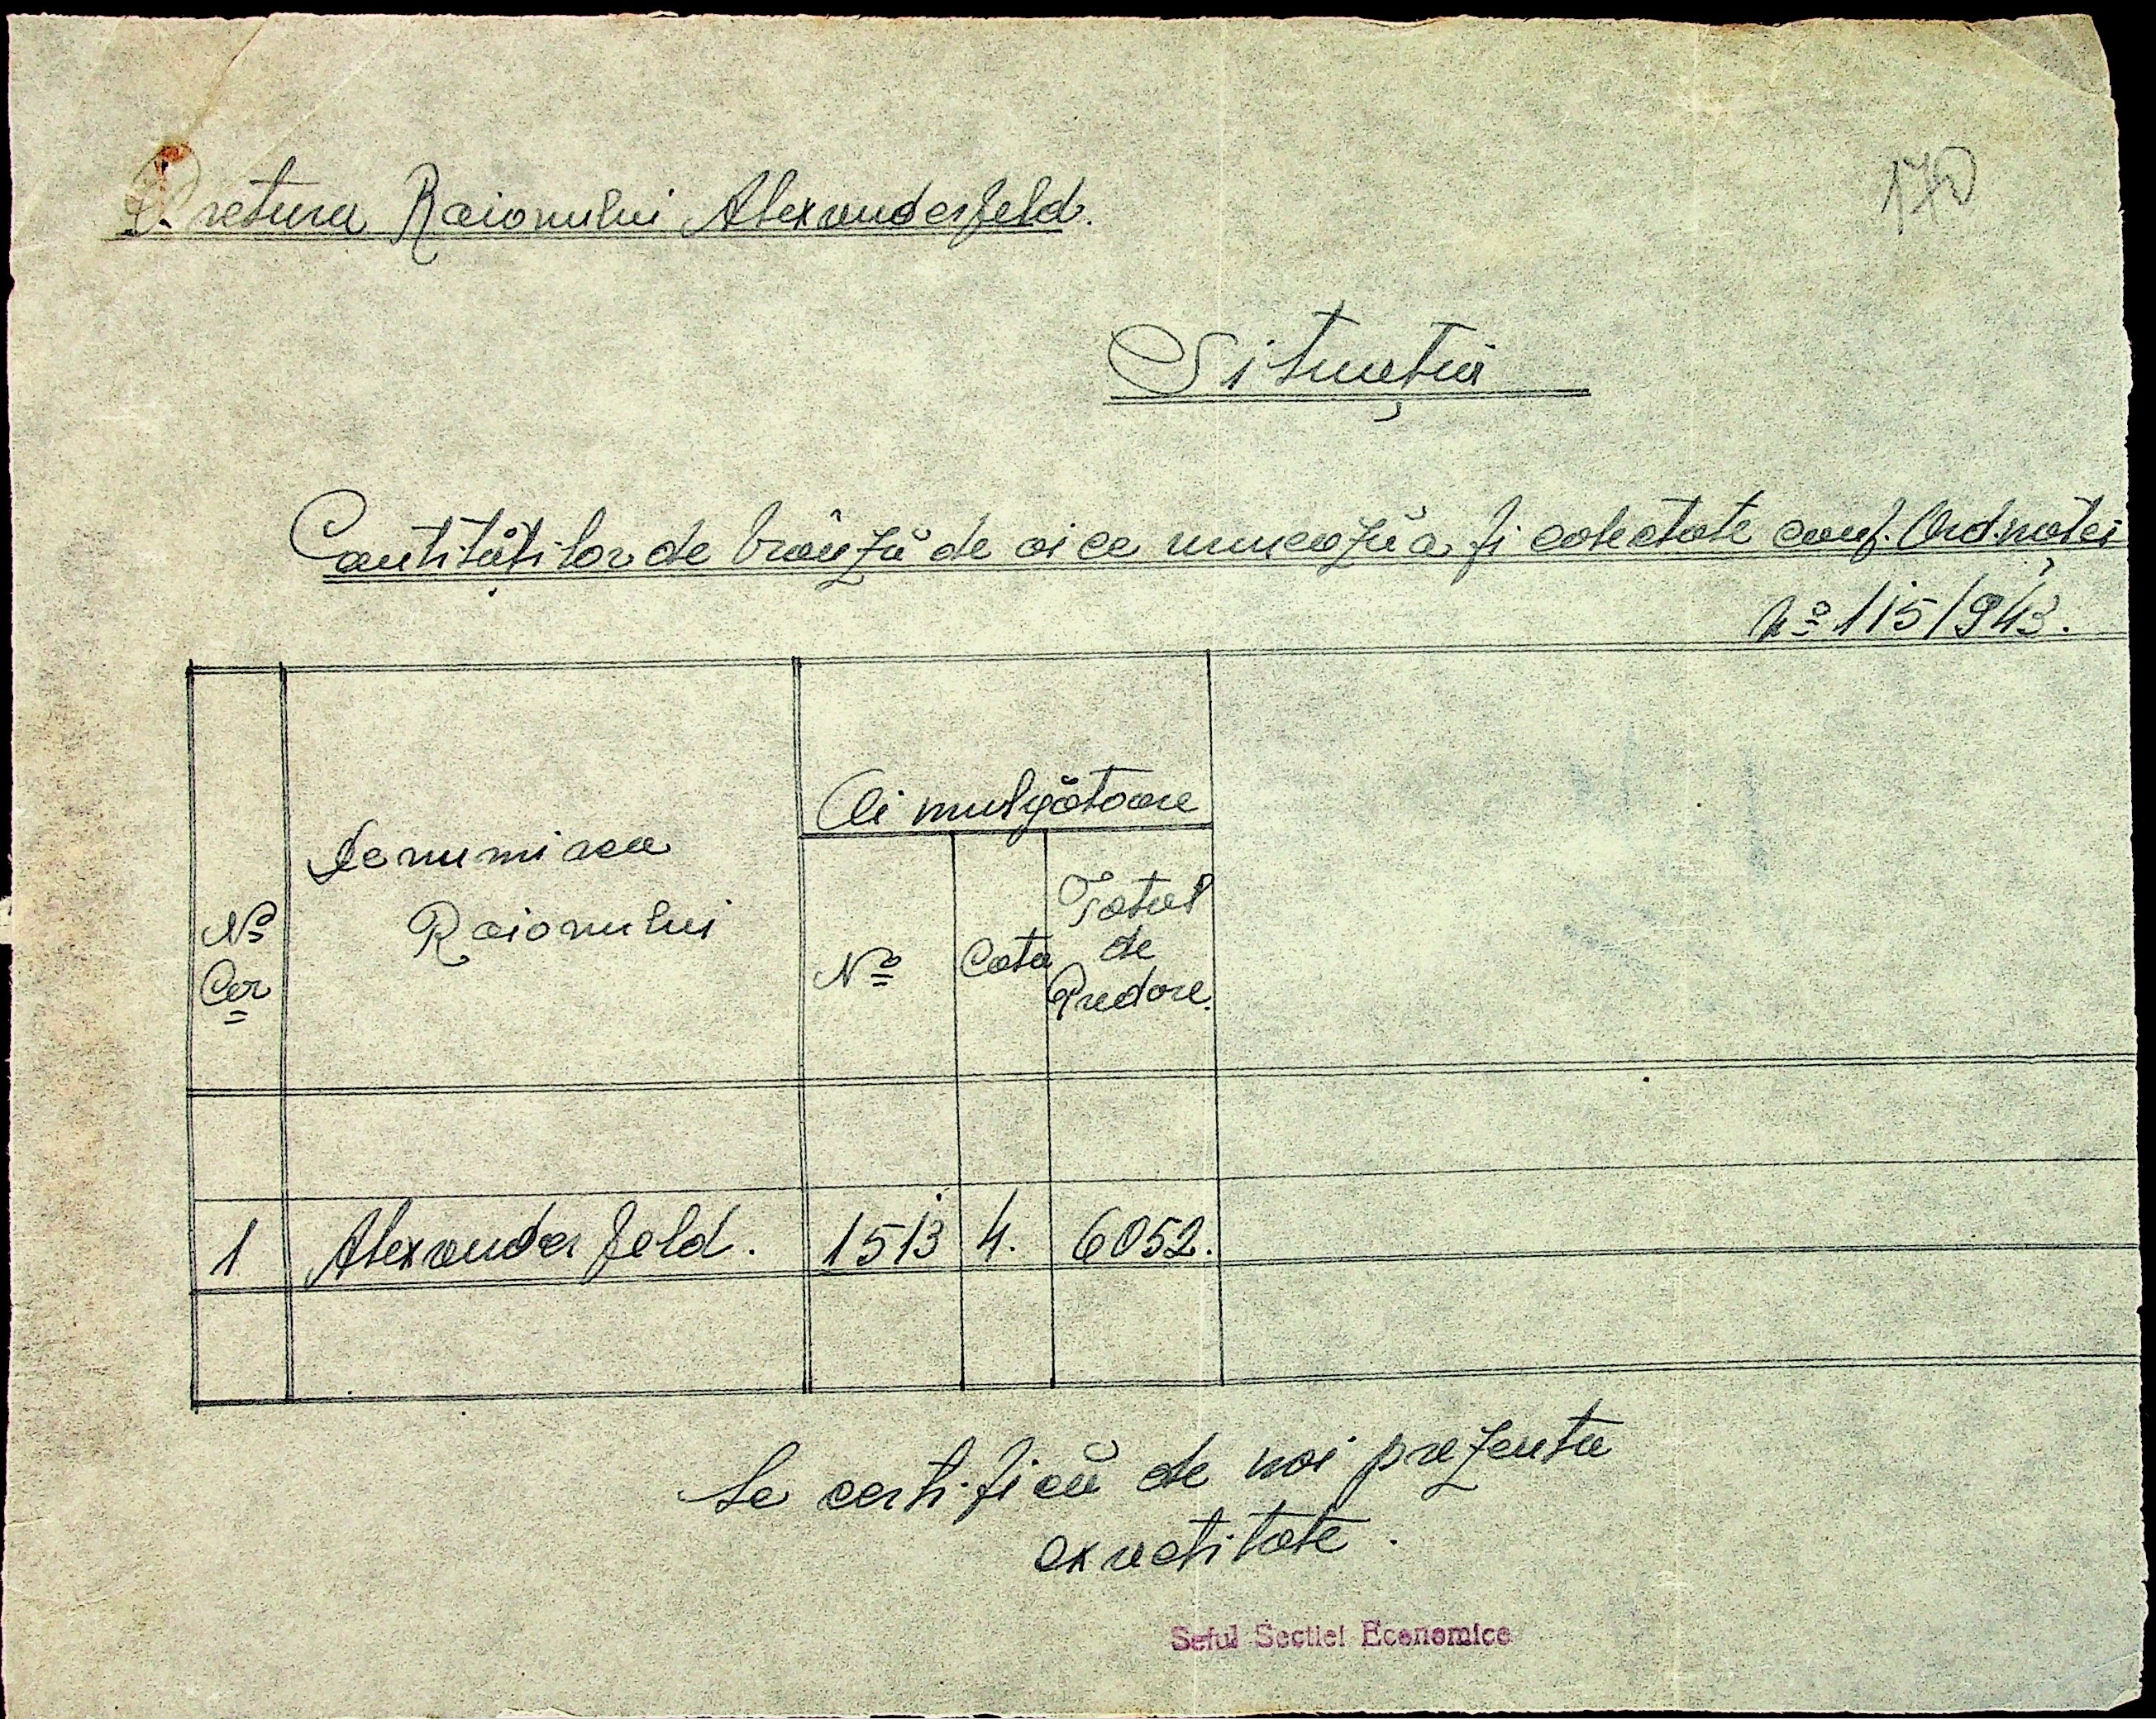 170
Pretura Raionului Alexanderfeld.
Situația
Cantităților de brânză de oi ce urmează a fi colectate conf. Ord.nanței
No 115/943.
No Cor
Denumirea Raionului
Oi mulgătoare
No
Cota
Total de Predare.
1 Alexanderfeld. 1513 4. 6052.
Se certifică de noi prezenta
exactitate.
Seful Sectiei Economice